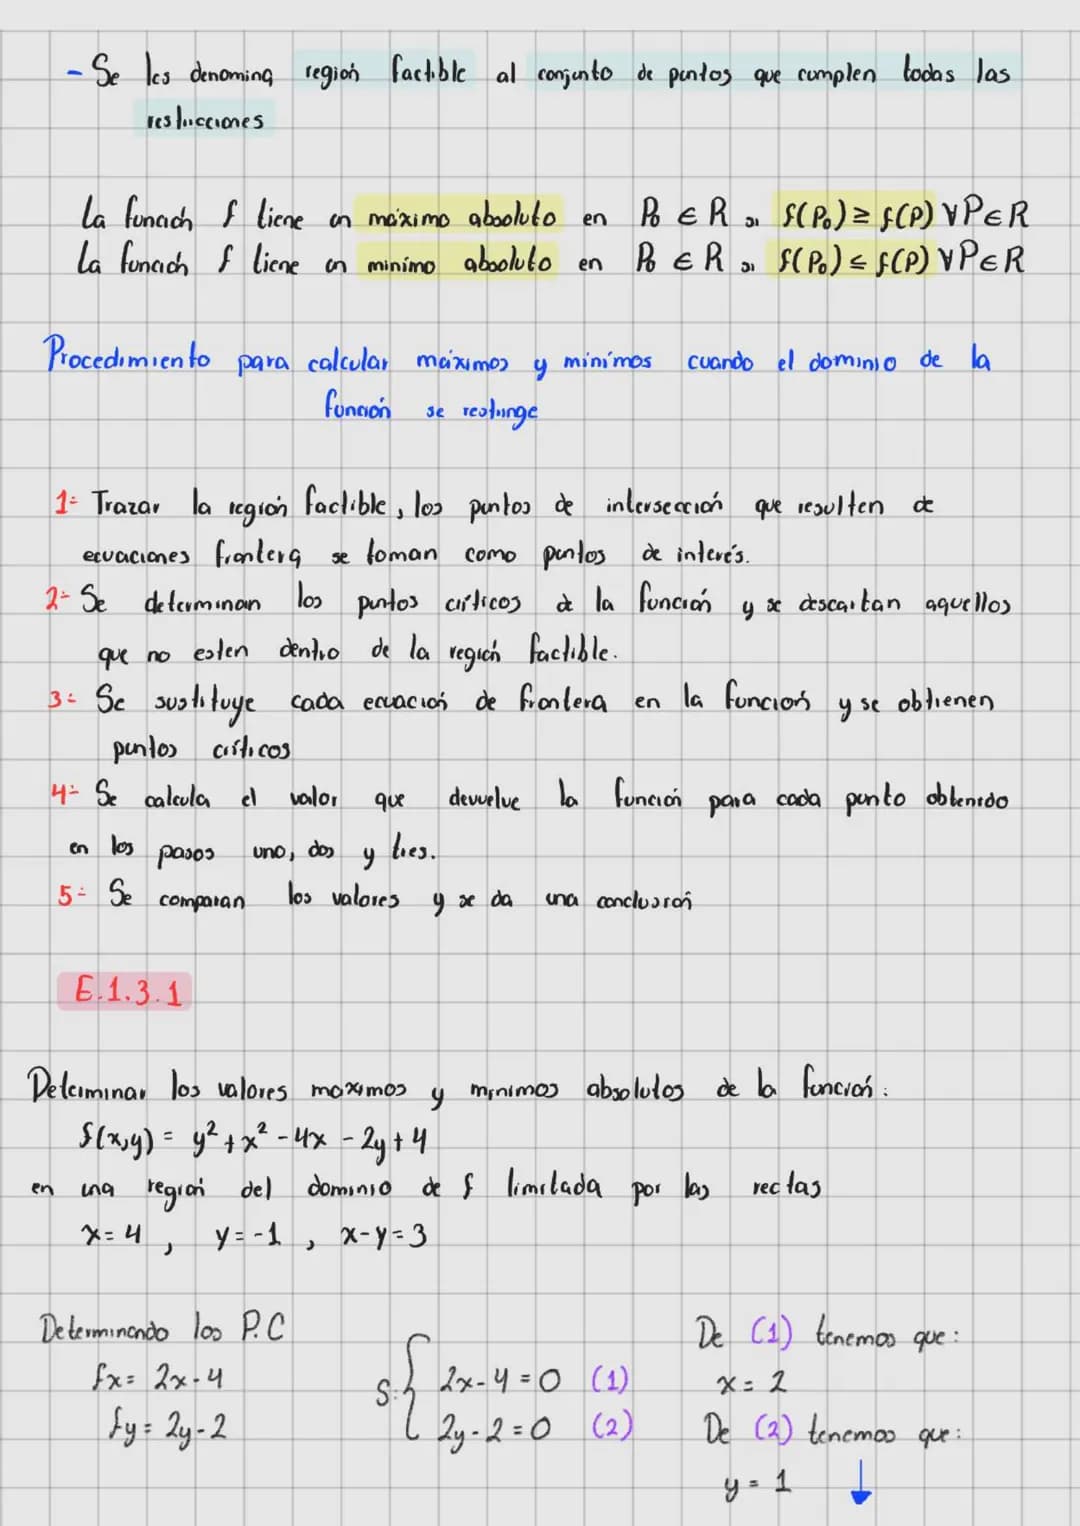 - Se les denomina región factible al conjunto de puntos que cumplen todas las
restricciones
La función f tiene un máximo absoluto en P₀ ∈ R si f(P₀) ≥ f(P) ∀P∈R
La función f tiene un mínimo absoluto en P₀ ∈ R si f(P₀) ≤ f(P) ∀P∈R
Procedimiento para calcular máximos y mínimos cuando el dominio de la
función se restringe
1- Trazar la región factible, los puntos de intersección que resulten de
ecuaciones frontera se toman como puntos de interés.
2- Se determinan los puntos críticos de la función y se descartan aquellos
que no esten dentro de la región factible.
3- Se sustituye cada ecuación de frontera en la función y se obtienen
puntos críticos
4- Se calcula el valor que devuelve la función para cada punto obtenido
en los pasos uno, dos y tres.
5- Se comparan los valores y se da una conclusión
E.1.3.1
Determinar los valores maximos y mínimos absolutos de la función:
f(x,y) = y² + x² - 4x - 2y + 4
en una región del dominio de f limitada por las rectas
x = 4 , y = -1 , x - y = 3
Determinando los P.C
fx = 2x - 4
fy = 2y - 2
S: { 2x - 4 = 0 (1)
2y - 2 = 0 (2)
De (1) tenemos que:
x = 2
De (2) tenemos que:
y = 1 ↓